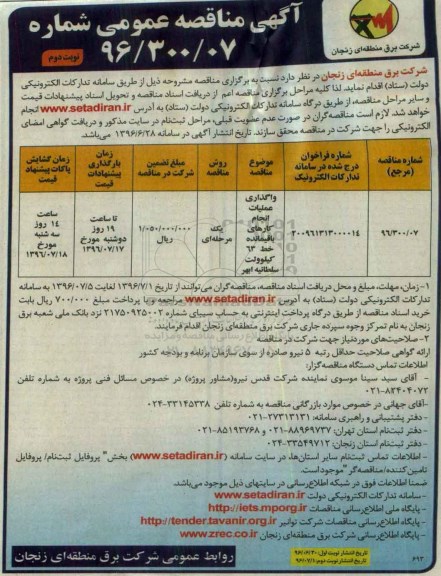 شرکت برق منطقه‌ای زنجان
آگهی مناقصه عمومی شماره
۹۶/۳۰۰/۰۷
نوبت دوم
شرکت برق منطقه‌ای زنجان در نظر دارد نسبت به برگزاری مناقصه مشروحه ذیل از طریق سامانه تدارکات الکترونیکی
دولت (ستاد) اقدام نماید. لذا کلیه مراحل برگزاری مناقصه اعم از دریافت اسناد مناقصه و تحویل اسناد پیشنهادات قیمت
و سایر مراحل مناقصه، از طریق درگاه سامانه تدارکات الکترونیکی دولت (ستاد) به آدرس www.setadiran.ir انجام
خواهد شد. لازم است مناقصه‌گران در صورت عدم عضویت قبلی، مراحل ثبت‌نام در سایت مذکور و دریافت گواهی امضای
الکترونیکی را جهت شرکت در مناقصه محقق سازند. تاریخ انتشار آگهی در سامانه ۱۳۹۶/۶/۲۸ می‌باشد.
شماره مناقصه (مرجع)
شماره فراخوان درج شده در سامانه تدارکات الکترونیک
موضوع مناقصه
روش مناقصه
مبلغ تضمین شرکت در مناقصه
زمان بارگذاری پیشنهادات قیمت
زمان گشایش پاکات پیشنهاد قیمت
۹۶/۳۰۰/۰۷
۲۰۰۹۶۱۳۱۳۰۰۰۰۱۴
واگذاری عملیات انجام کارهای باقیمانده خط ۶۳ کیلوولت سلطانیه ابهر
یک مرحله‌ای
۱/۰۵۰/۰۰۰/۰۰۰ ریال
تا ساعت ۱۹ روز دوشنبه مورخ ۱۳۹۶/۰۷/۱۷
ساعت ۱۴ روز سه شنبه مورخ ۱۳۹۶/۰۷/۱۸
۱- زمان، مهلت، مبلغ و محل دریافت اسناد مناقصه، مناقصه‌گران می‌توانند از تاریخ ۱۳۹۶/۷/۱ لغایت ۱۳۹۶/۰۷/۵ به سامانه
تدارکات الکترونیکی دولت (ستاد) به آدرس www.setadiran.ir مراجعه و با پرداخت مبلغ ۷۰۰/۰۰۰ ریال بابت
خرید اسناد مناقصه از طریق درگاه پرداخت اینترنتی به حساب سیبای شماره ۲۱۷۵۰۹۲۵۰۰۲ نزد بانک ملی شعبه برق
زنجان به نام تمرکز وجوه سپرده جاری شرکت برق منطقه‌ای زنجان اقدام فرمایند.
۲- صلاحیت‌های موردنیاز جهت شرکت در مناقصه:
ارائه گواهی صلاحیت حداقل رتبه ۵ نیرو صادره از سوی سازمان برنامه و بودجه کشور
اطلاعات تماس دستگاه مناقصه‌گزار:
- آقای سید سینا موسوی نماینده شرکت قدس نیرو(مشاور پروژه) در خصوص مسائل فنی پروژه به شماره تلفن
۰۲۱-۸۲۴۰۴۰۷۲
-آقای جهانی در خصوص موارد بازرگانی مناقصه به شماره تلفن ۳۳۱۴۵۳۳۸-۰۲۴
- دفتر پشتیبانی و راهبری سامانه: ۲۷۳۱۳۱۳۱-۰۲۱
- دفتر ثبت‌نام استان تهران: ۸۸۹۶۹۷۳۷-۰۲۱ و ۸۵۱۹۳۷۶۸-۰۲۱
- دفتر ثبت‌نام استان زنجان: ۳۳۵۴۹۷۱۲-۰۲۴
- اطلاعات تماس ثبت‌نام سایر استان‌ها، در سایت سامانه (www.setadiran.ir) بخش" پروفایل ثبت‌نام/ پروفایل
تامین کننده/مناقصه‌گر "موجود است.
ضمنا اطلاعات فوق در شبکه اطلاع‌رسانی در سایتهای ذیل موجود می‌باشد.
- سامانه تدارکات الکترونیکی دولت www.setadiran.ir
- پایگاه ملی اطلاع‌رسانی مناقصات http://iets.mporg.ir
- پایگاه اطلاع‌رسانی مناقصات شرکت توانیر http://tender.tavanir.org.ir
- پایگاه اطلاع‌رسانی شرکت برق منطقه‌ای زنجان www.zrec.co.ir
۶۹۳
تاریخ انتشار نوبت اول: ۹۶/۰۶/۳۰
تاریخ انتشار نوبت دوم: ۹۶/۰۷/۱
روابط عمومی شرکت برق منطقه‌ای زنجان